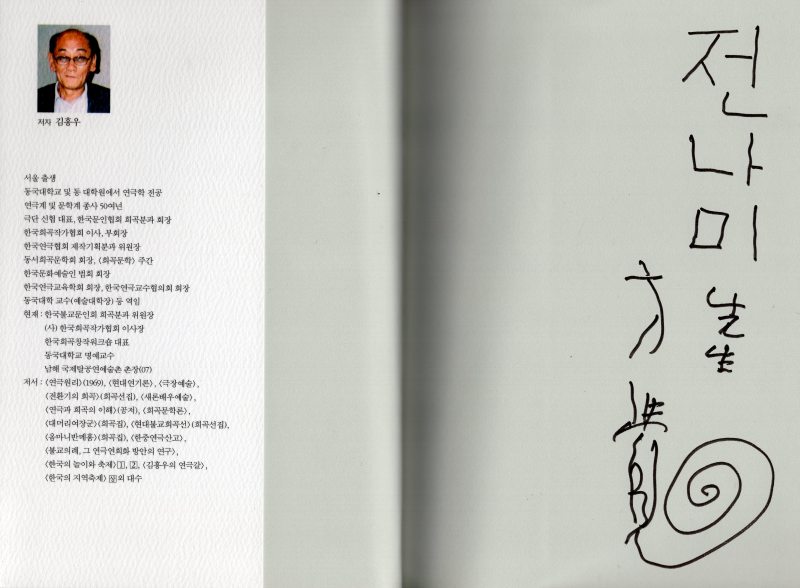 저자 김흥우
서울 출생
동국대학교 및 동 대학원에서 연극학 전공
연극계 및 문학계 종사 50여년
극단 신협 대표, 한국문인협회 희곡분과 회장
한국희곡작가협회 이사, 부회장
한국연극협회 제작기획분과 위원장
동서희곡문학회 회장, 〈희곡문학〉 주간
한국문화예술인 범회 회장
한국연극교육학회 회장, 한국연극교수협의회 회장
동국대학 교수(예술대학장) 등 역임
현재 : 한국불교문인회 희곡분과 위원장
(사) 한국희곡작가협회 이사장
한국희곡창작워크숍 대표
동국대학교 명예교수
남해 국제탈공연예술촌 촌장(07)
저서 : 〈연극원리〉(1969), 〈현대연기론〉, 〈극장예술〉,
〈전환기의 희곡〉(희곡선집), 〈새론배우예술〉,
〈연극과 희곡의 이해〉(공저), 〈희곡문학론〉,
〈대머리여장군〉(희곡집), 〈현대불교희곡선〉(희곡선집),
〈옴마니반메훔〉(희곡집), 〈한중연극산고〉,
〈불교의례, 그 연극연희화 방안의 연구〉,
〈한국의 놀이와 축제〉1, 2, 〈김흥우의 연극갈〉,
〈한국의 지역축제〉 외 대수
전나미